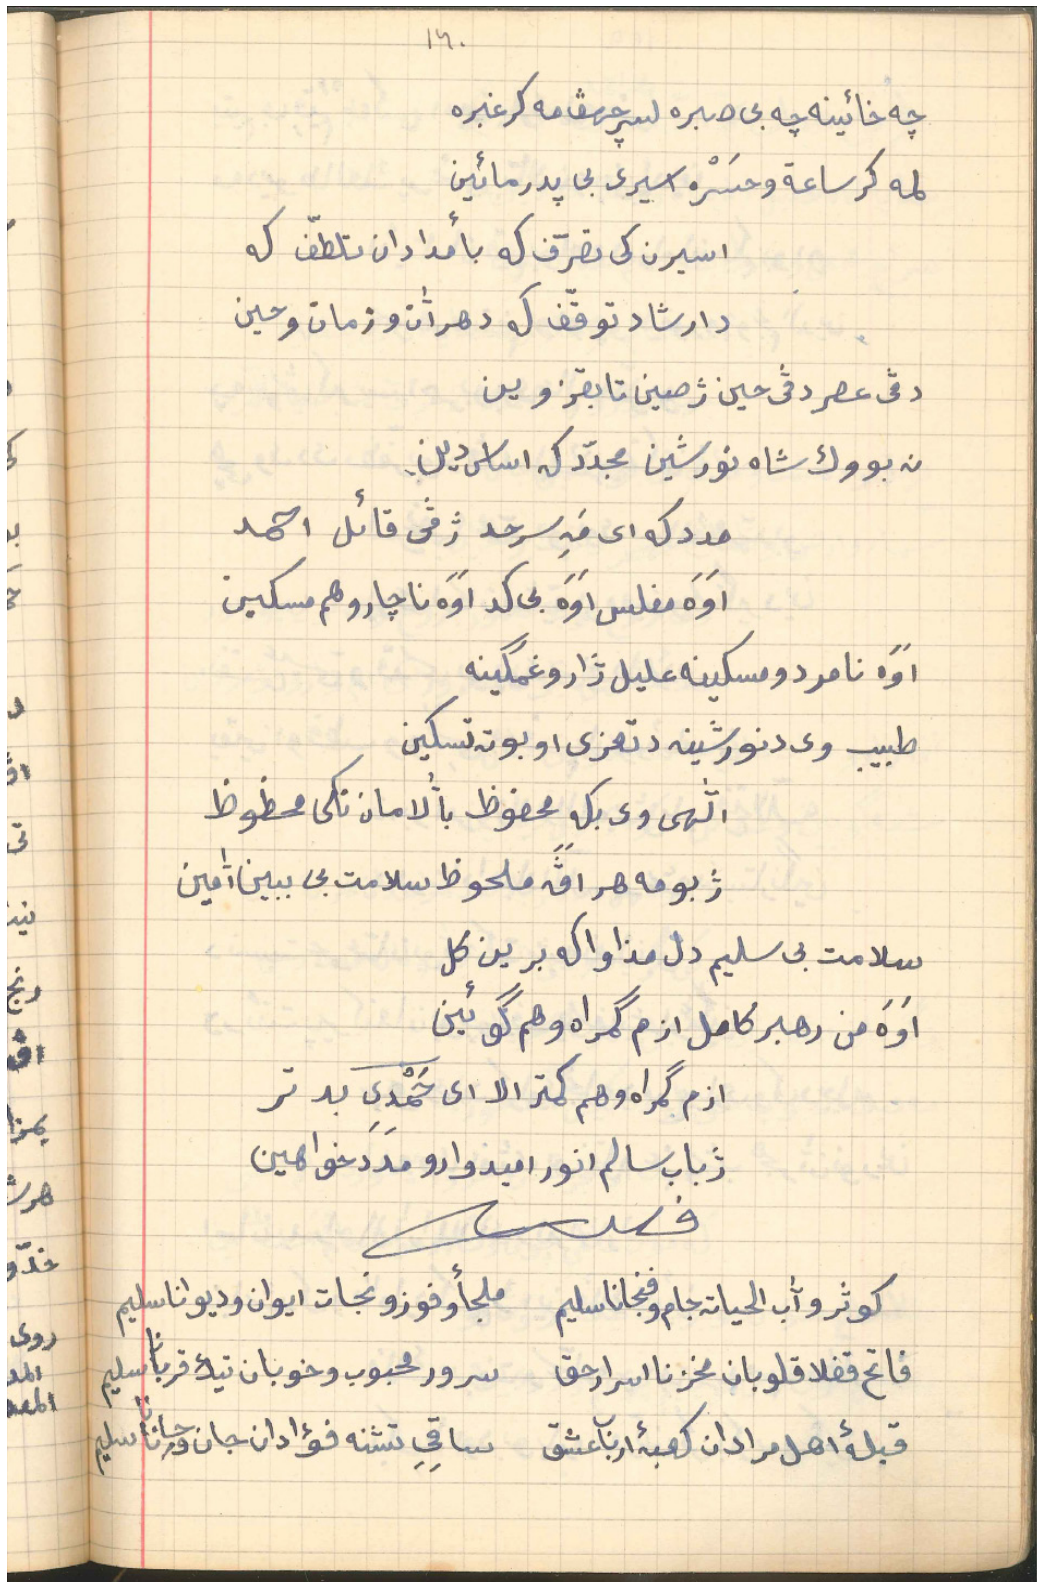 ١٦٠
چه خائینه چه بی صبره لسر چرمڤامه کر غبره
لمه کر ساعة و حَسْره اسیری بی پدر مائین
اسیرن کی تصرّف که بأمدادان تلطّف که
دارشاد توقّف که دهر آن و زمان و حین
دڤی عصر دڤی حین ژ صین تا بقزوین
نه بووك شاه نورشین مجدّد که اساس دین
مدد که ای مَهِ سرحد ژڤی قائل احمد
اَوَه مفلس اَوَه بی کد اَوَه ناچار و هم مسکین
اَوَه نامرد و مسکینه علیل ژار و غمگینه
طبیب وی دنورشینه دتعزی او بوته تسکین
الٰهی وی بکه محفوظ بألامان نکی محظوظ
ژبومه هر اڤَه ملحوظ سلامت بی ببین آمین
سلامت بی سلیم دل مداوا که برین کل
اَوَه من رهبر کامل ازم گمراه و هم گوئین
ازم گمراه و هم کمتر الا ای حَمْدیِ بدتر
ژباب سالم انور امیدوار و مَدَدخواهین
کوثر و آب الحیاتـه جام و فنجانا سلیم ملجأ و فوز و نجات ایوان و دیوانا سلیم
فاتح قفلا قلوبان مخزنا اسرار حق سرور محبوب و خوبان تیك قربانا سلیم
قبلۀ اهل مرادان کعبۀ ارباب عشق ساقیِ تشنه فؤادان جان و جانانا سلیم